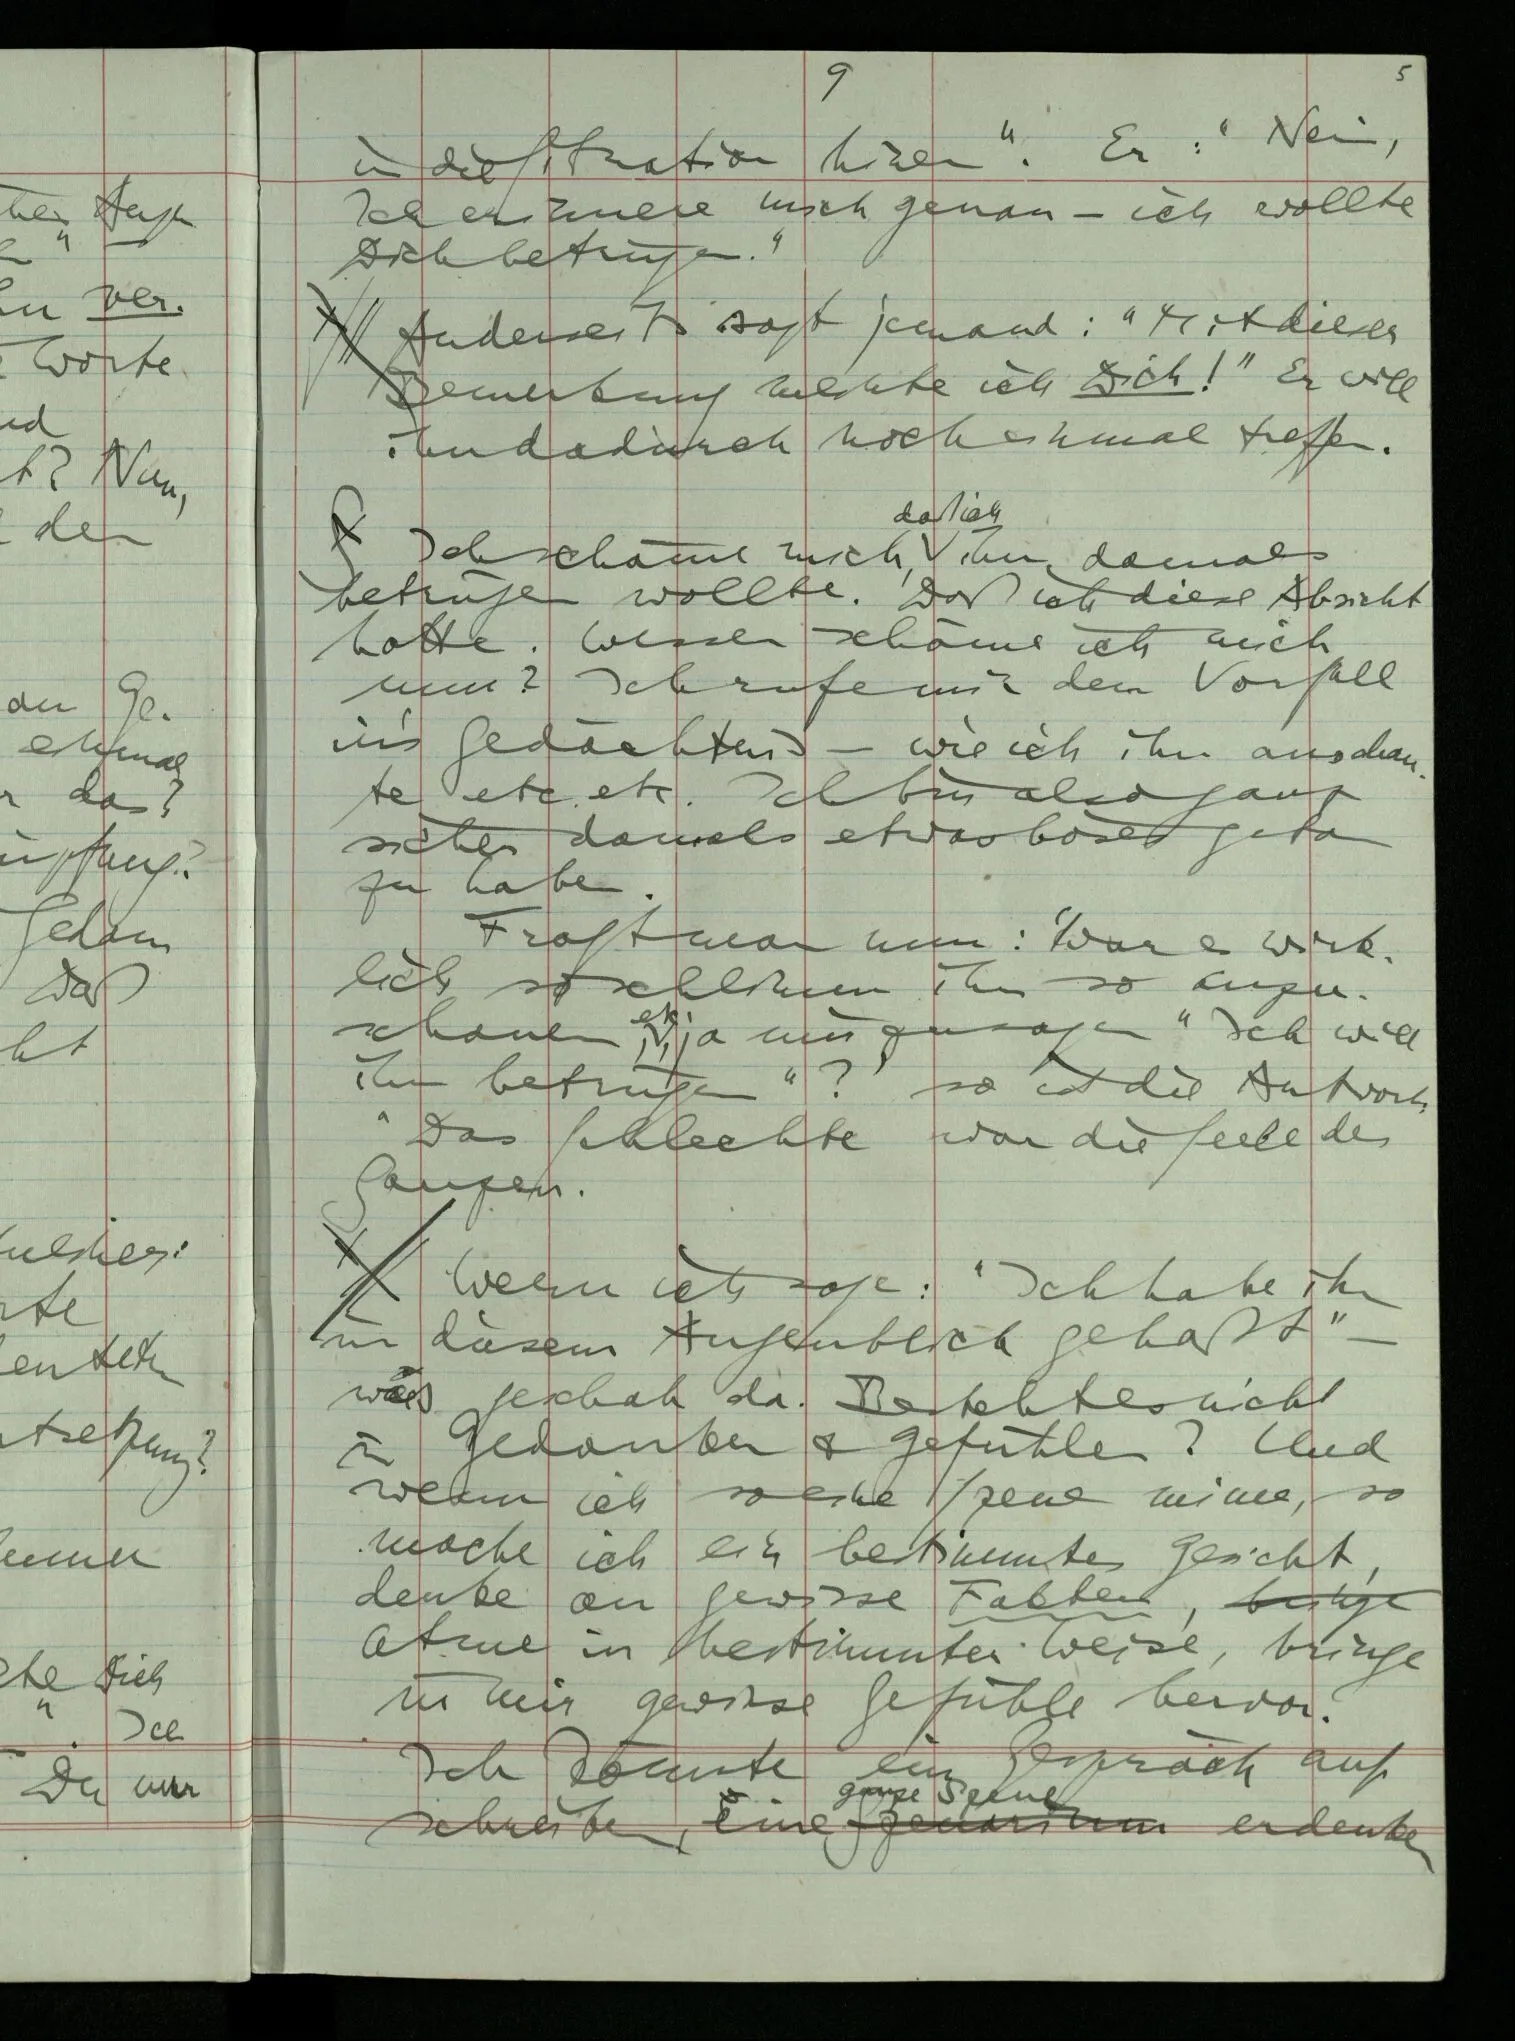 9
5
in die Situation hinein". Er: "Nein,
Ich erinnere mich genau – ich wollte
Dich betrügen."
Anderseits sagt jemand: "Mit dieser
Bemerkung meinte ich Dich!" Er will
ihn dadurch noch einmal treffen.
daß ich
Ich schäme mich, ihn damals
betrügen wollte. Daß ich diese Absicht
hatte. Wessen schäme ich mich
nun? Ich rufe mir den Vorfall
ins Gedächtnis – wie ich ihn anschau-
te etc. etc. Ich bin also ganz
sicher damals etwas böses getan
zu haben.
Fragt man nun: 'War es wirk-
lich so schlimm ihn so anzu-
etc
schauen, ja nur zu sagen "Ich will
ihn betrügen"?' so ist die Antwort
"Das Schlechte war die Seele des
Ganzen.
Wenn ich sage: "Ich habe ihn
in diesem Augenblick gehaßt" –
was geschah da. Bestehtes nicht
in Gedanken & Gefühlen? Und
wenn ich so eine Szene mime, so
mache ich ein bestimmtes Gesicht,
denke an gewisse Fakten, bringe
Atme in bestimmter Weise, bringe
in mir gewisse Gefühle hervor.
Ich könnte ein Gespräch auf
ganze Szene
schreiben, eine Szenarium erdenken
ver.
Worte
t? Nun,
den
Ge-
einmal
das?
Daß
Dich
Ich
Du nur